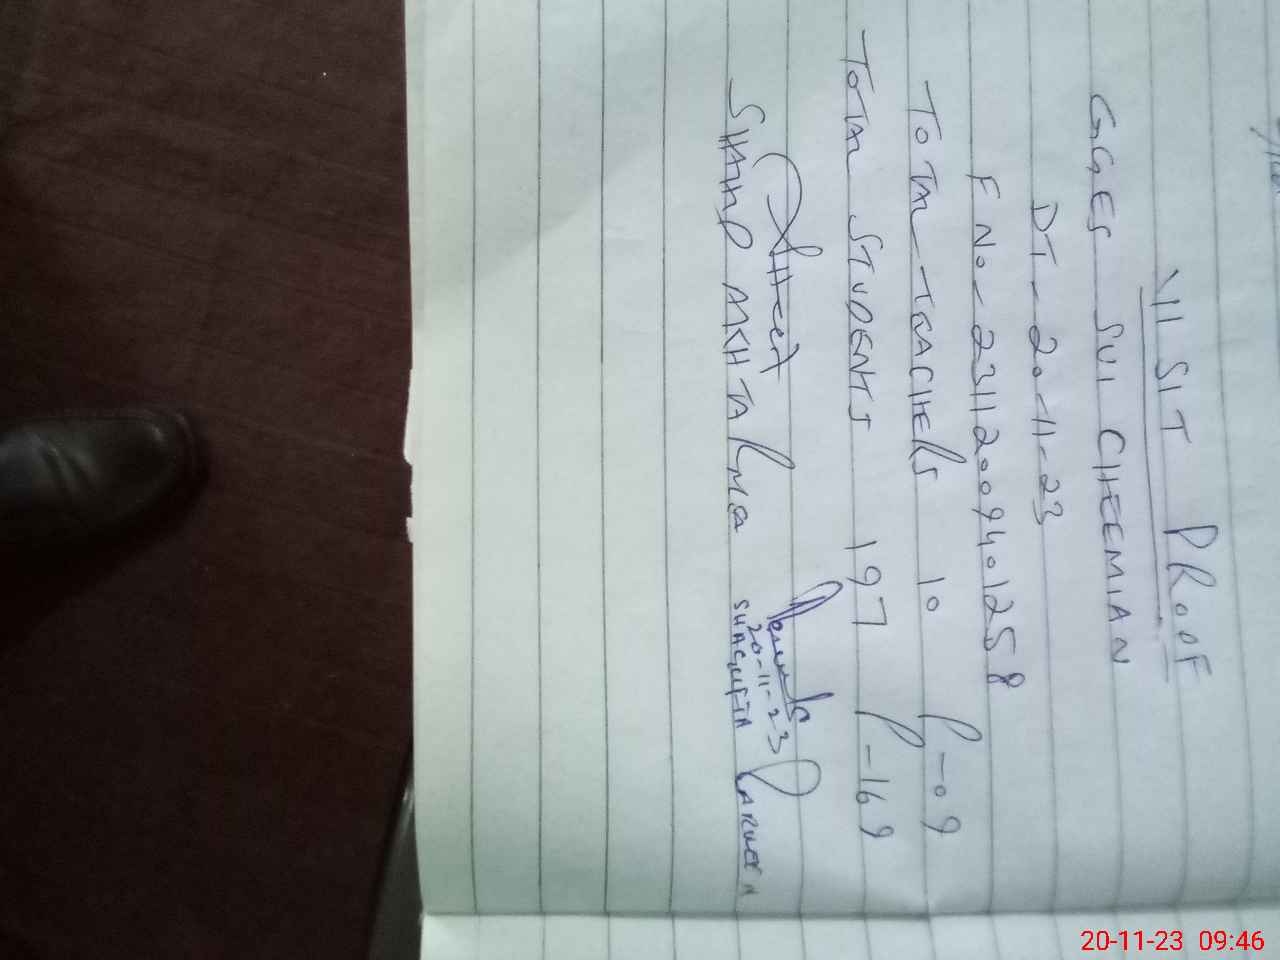 VISIT PROOF
GGES SUI CHEEMIAN
DT - 20-11-23
F NO- 23112009401258
TOTAL TEACHERS 10 P-09
TOTAL STUDENTS 197 P-169
20-11-23
SHAGUFTA PARVEEN
20-11-23 09:46